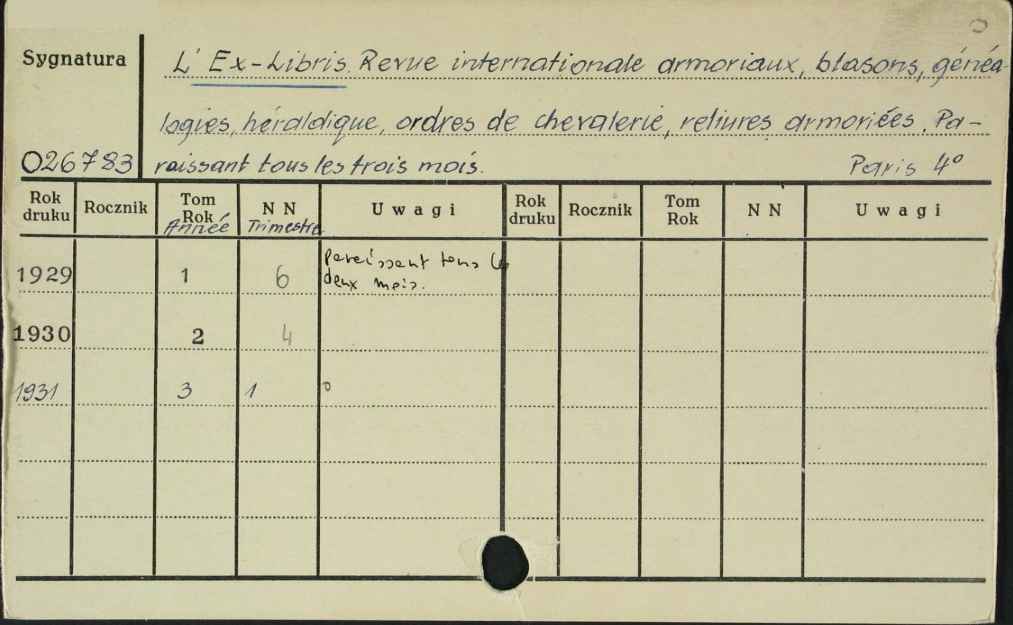 Sygnatura
L' Ex-Libris. Revue internationale armoriaux, blasons, généa-
logies, héraldique, ordres de chevalerie, reliures armoriées. Pa-
026783 raissant tous les trois mois. Paris 4°
Rok druku Rocznik Tom Rok Année N N Trimestre Uwagi Rok druku Rocznik Tom Rok N N Uwagi
1929 1 6 Paraissant tous les
deux mois.
1930 2 4
1931 3 1 °